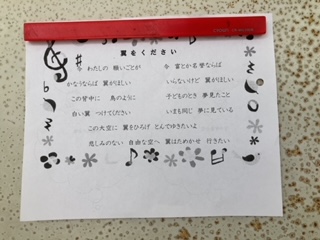 翼をください
今 わたしの 願いごとが
かなうならば 翼がほしい
この背中に 鳥のように
白い翼 つけてください
今 富とか名誉ならば
いらないけど 翼がほしい
子どものとき 夢見たこと
いまも同じ 夢に見ている
この大空に 翼をひろげ とんでゆきたいよ
悲しみのない 自由な空へ 翼はためかせ 行きたい